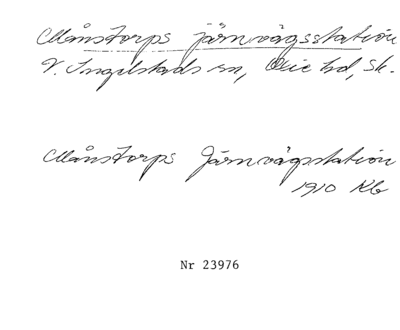 Månstorps järnvägsstation
V. Ingelstads sn, Oxie hd, Sk.
Månstorps Järnvägsstation
1910 Kb
Nr 23976